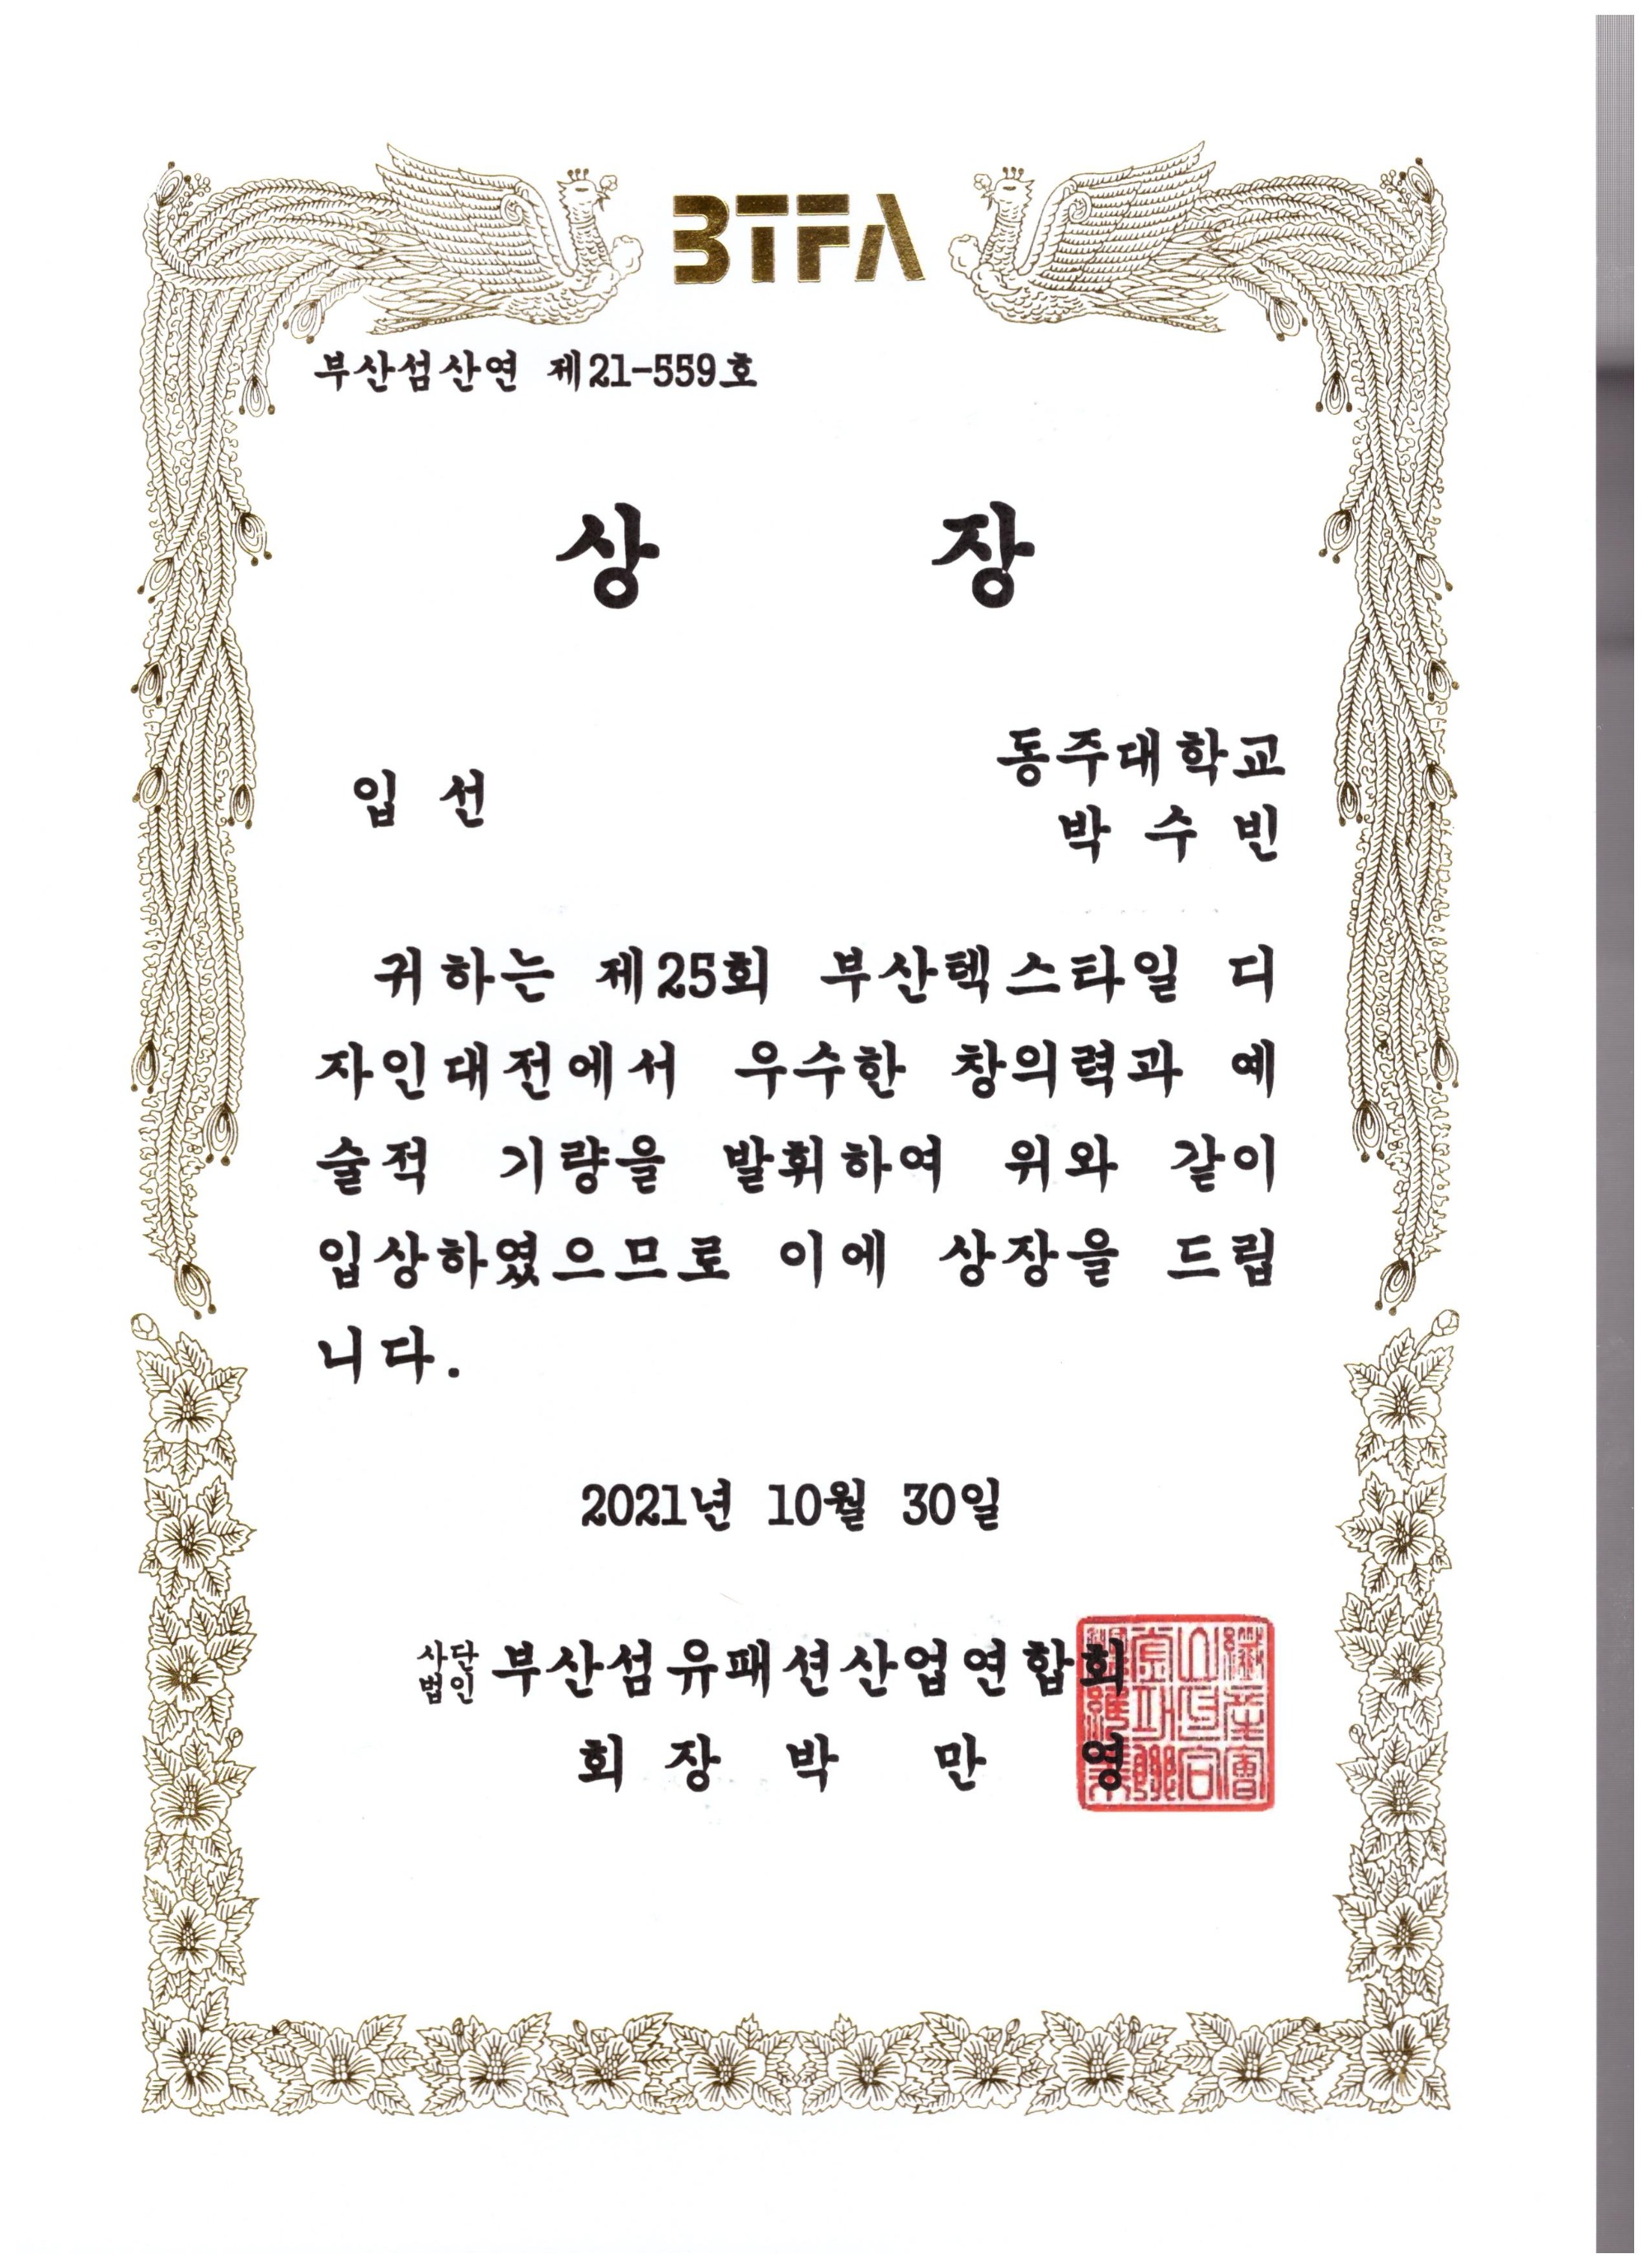 BTFA
부산섬산연 제21-559호
상 장
동주대학교
입 선
박 수 빈
귀하는 제25회 부산텍스타일 디
자인대전에서 우수한 창의력과 예
술적 기량을 발휘하여 위와 같이
입상하였으므로 이에 상장을 드립
니다.
2021년 10월 30일
사단법인 부산섬유패션산업연합회
회 장 박 만 영